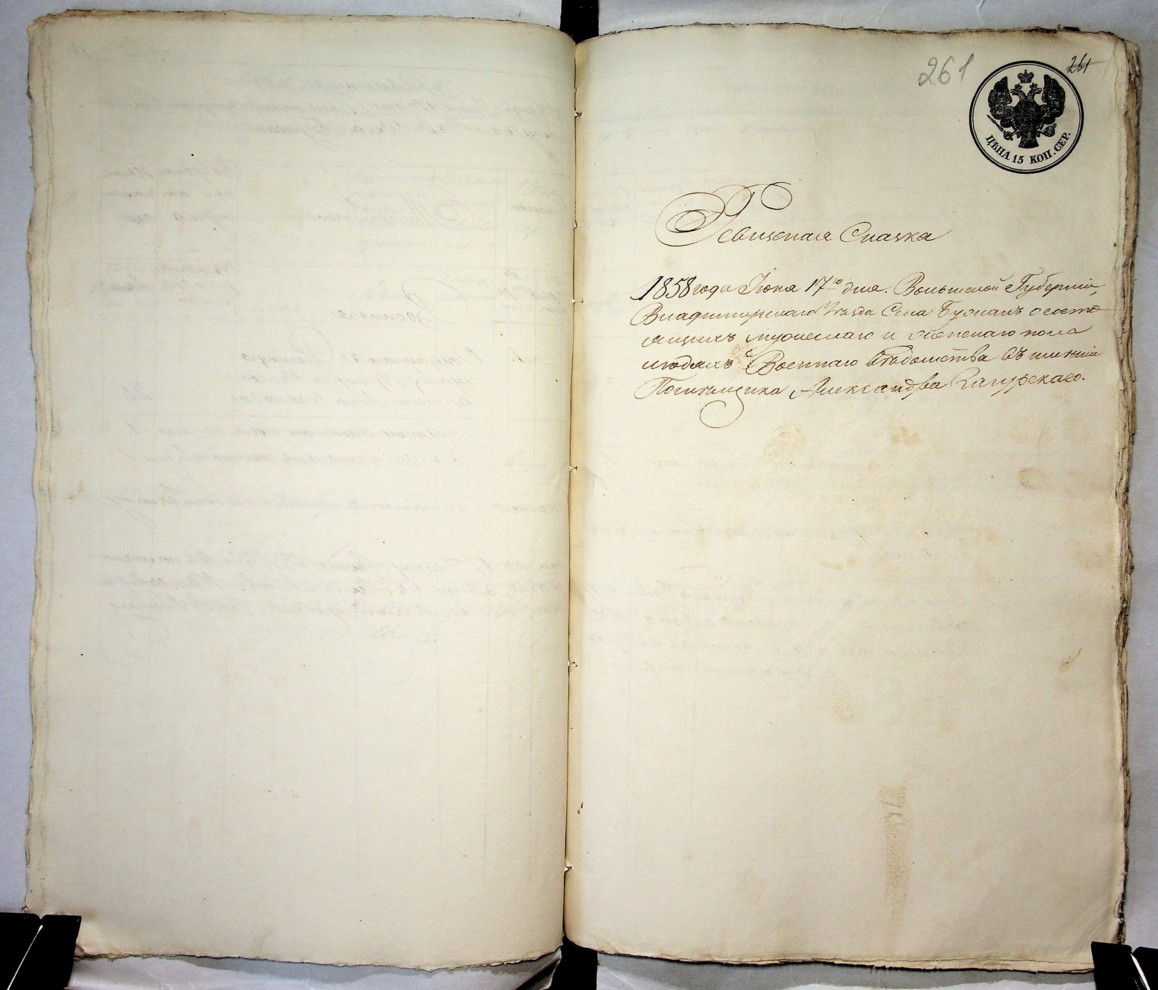 261
261
ЦѢНА 15 КОП. СЕР.
Ревизская Сказка
1858 года Іюня 17го дня. Волынской Губерніи,
Владимирскаго Уѣзда Села Бужанъ о состо
ящихъ мужескаго и женскаго пола
людяхъ Военнаго Вѣдомства въ имѣніи
Помѣщика Александра